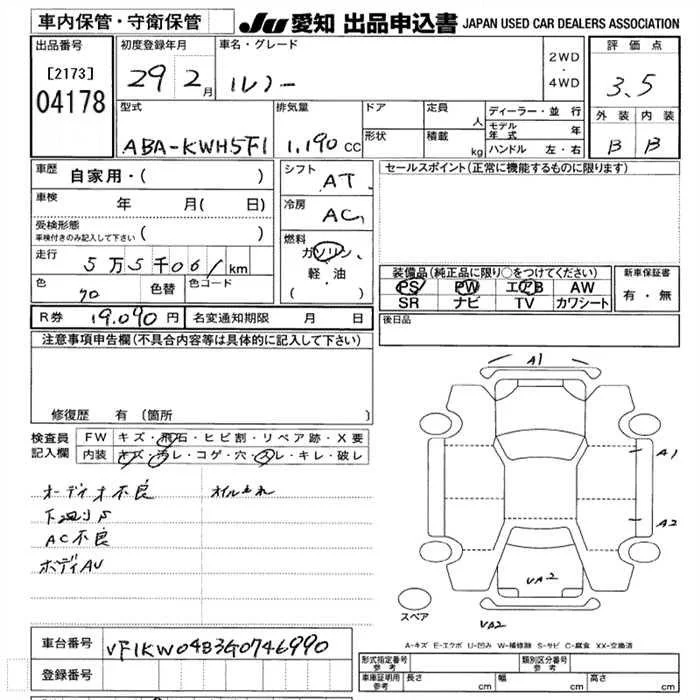 車内保管・守衛保管
JU 愛知 出品申込書 JAPAN USED CAR DEALERS ASSOCIATION
出品番号
[2173]
04178
初度登録年月
29 2月
車名・グレード
ルノー
2WD
・
4WD
評価点
3.5
外装 内装
B B
型式
ABA-KWH5F1
排気量
1,190cc
ドア
形状
定員 人
積載 kg
ディーラー・並行
モデル年式 年
ハンドル 左・右
車歴
自家用・( )
車検 年 月( 日)
受検形態
車検付きのみ記入して下さい ( )
走行 5万5千061km
色
色替
色コード
シフト
AT
冷房
AC
燃料
ガソリン
軽・油
( )
セールスポイント(正常に機能するものに限ります)
装備品(純正品に限り○をつけてください)
PS PW エアB AW
SR ナビ TV カワシート
新車保証書
有・無
後日品
R券 19,090円
名変通知期限 月 日
注意事項申告欄(不具合内容等は具体的に記入して下さい)
修復歴 有(箇所 )
検査員記入欄
FW キズ・飛石・ヒビ割・リペア跡・X要
内装 キズ・汚レ・コゲ・穴・スレ・キレ・破レ
オーディオ不良
オイルもれ
下廻りS
AC不良
ボディAU
A1
A1
A2
UA2
UA2
スペア
A-キズ E-エクボ U-凹み W-補修跡 S-サビ C-腐食 XX-交換済
車台番号
VF1KW04B3G0746990
登録番号
形式指定番号
参考
類別区分番号
参考
車庫証明用
参考
長さ cm
幅 cm
高さ cm